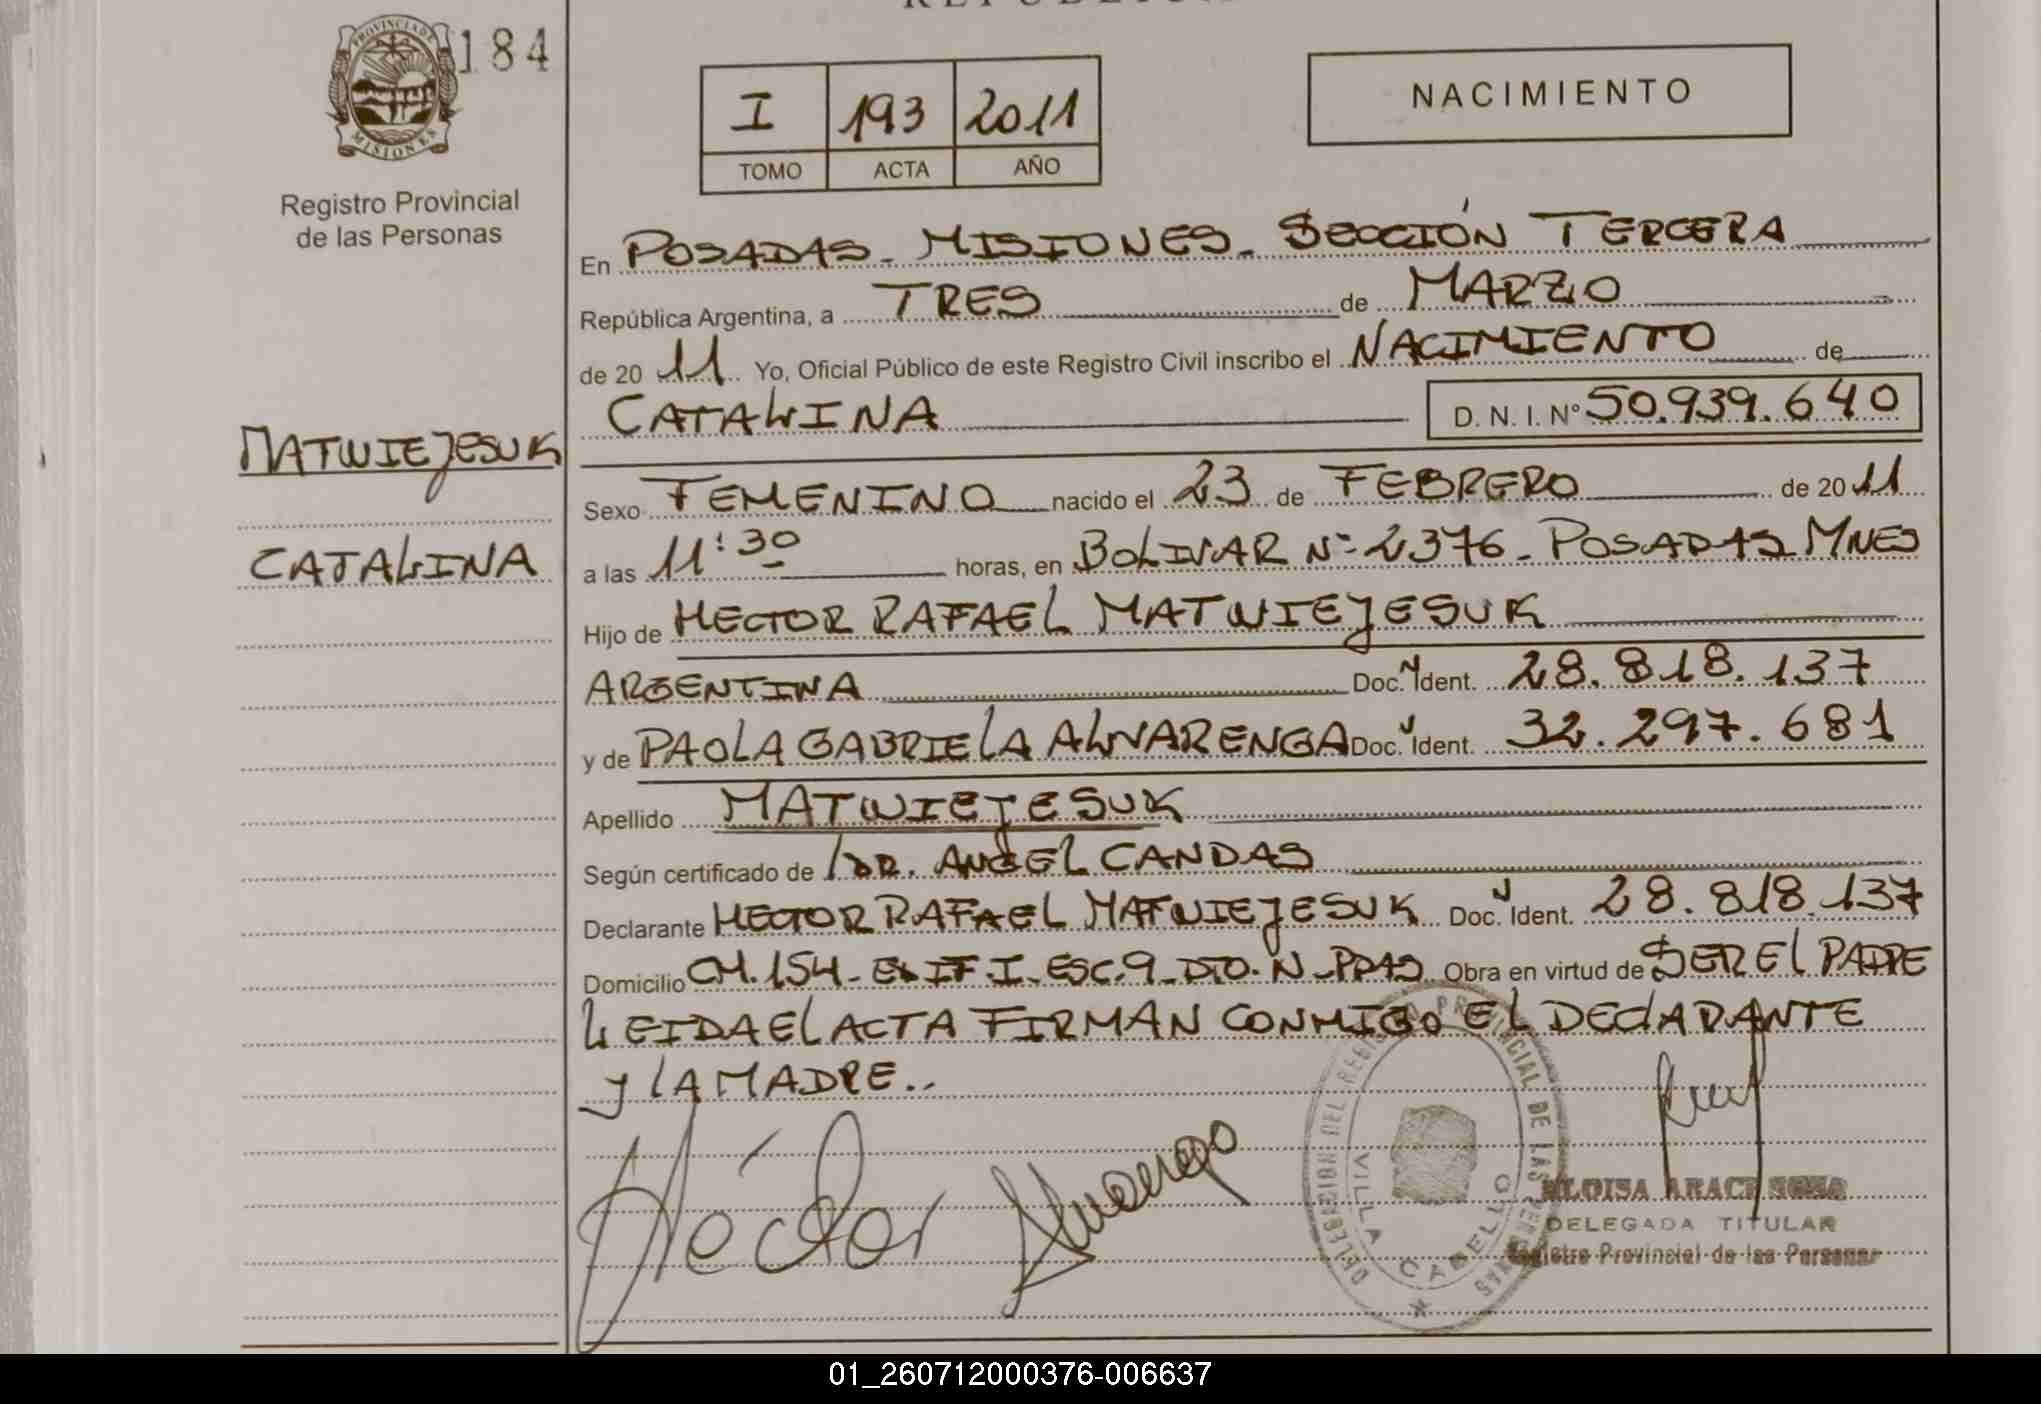 PROVINCIA DE
MISIONES
184
Registro Provincial
de las Personas
I 193 2011
TOMO ACTA AÑO
NACIMIENTO
En POSADAS - MISIONES - SECCIÓN TERCERA
República Argentina, a TRES de MARZO
de 20 11 Yo, Oficial Público de este Registro Civil inscribo el NACIMIENTO de
CATALINA D. N. I. Nº 50.939.640
MATWIEJESUK
CATALINA
Sexo FEMENINO nacido el 23 de FEBRERO de 20 11
a las 11:30 horas, en BOLIVAR Nº 2376 - POSADAS MNES
Hijo de HECTOR RAFAEL MATWIEJESUK
ARGENTINA Doc. Ident. 28.818.137
y de PAOLA GABRIELA ALVARENGA Doc. Ident. 32.297.681
Apellido MATWIEJESUK
Según certificado de DR. ANGEL CANDAS
Declarante HECTOR RAFAEL MATWIEJESUK Doc. Ident. 28.818.137
Domicilio CH. 154 - EDIF. I - ESC. 9 - DTO. N - PDAS Obra en virtud de SER EL PADRE
LEIDA EL ACTA FIRMAN CONMIGO EL DECLARANTE
Y LA MADRE..
Héctor Alvarenga
DELEGACION DEL REGISTRO PROVINCIAL DE LAS PERSONAS
VILLA CABELLO
DELEGADA TITULAR
Registro Provincial de las Personas
01_260712000376-006637